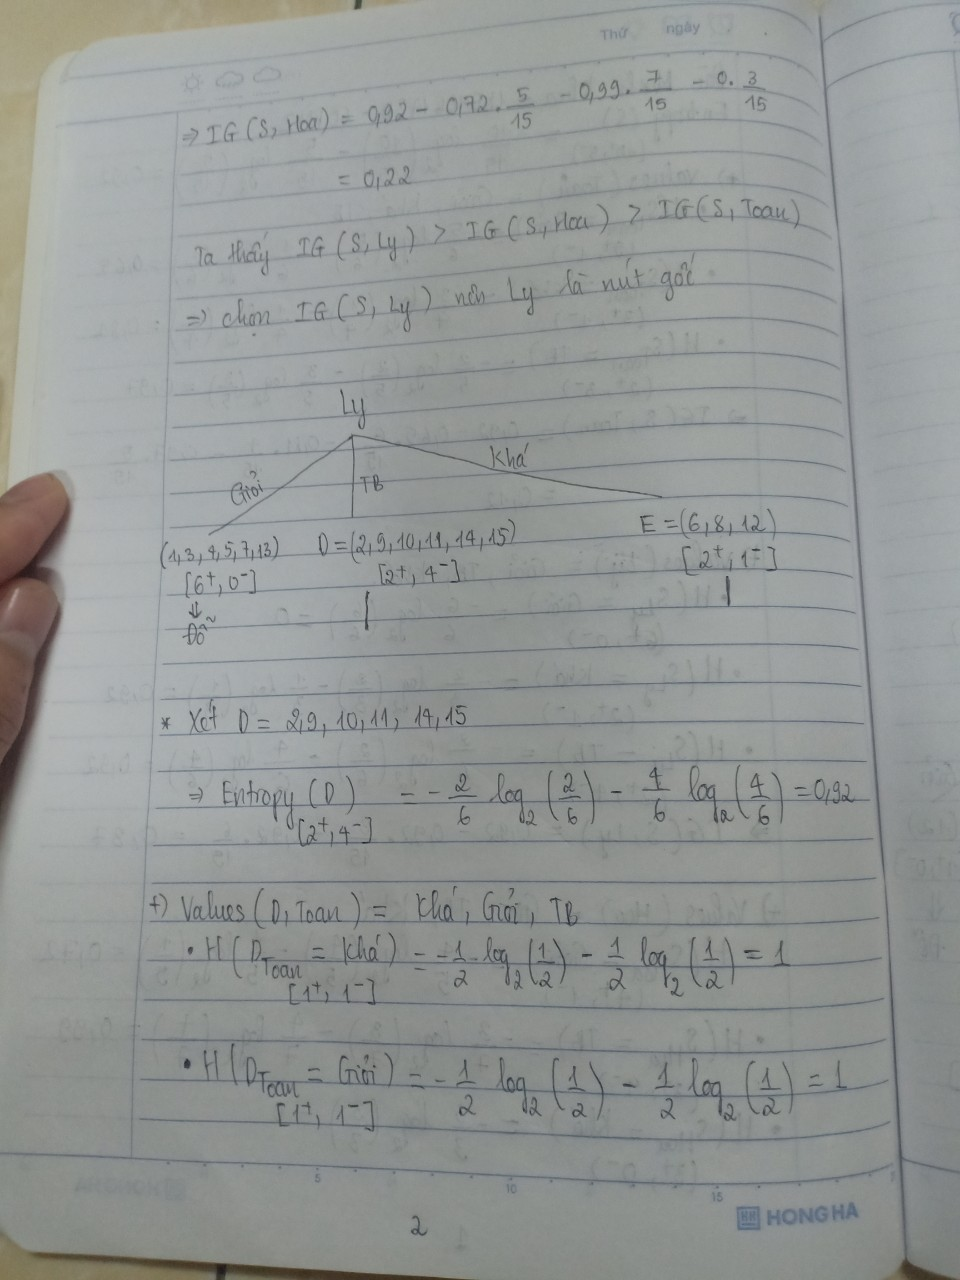 Thứ ngày
⇒ IG(S, Hoa) = 0,92 - 0,72. 5/15 - 0,99. 7/15 - 0. 3/15
= 0,22
Ta thấy IG(S, Ly) > IG(S, Hoa) > IG(S, Toan)
⇒ chọn IG(S, Ly) nên Ly là nút gốc
Ly
Giỏi TB Khá
(1,3,4,5,7,13) D=(2,9,10,11,14,15) E=(6,8,12)
[6⁺,0⁻] [2⁺,4⁻] [2⁺,1⁻]
⇓
Đỗ
* Xét D = 2,9, 10, 11, 14, 15
⇒ Entropy (D) = - 2/6 log₂(2/6) - 4/6 log₂(4/6) = 0,92
[2⁺,4⁻]
+) Values(D, Toan) = Khá, Giỏi, TB
• H(D_Toan = Khá) = - 1/2 log₂(1/2) - 1/2 log₂(1/2) = 1
[1⁺, 1⁻]
• H(D_Toan = Giỏi) = - 1/2 log₂(1/2) - 1/2 log₂(1/2) = 1
[1⁺, 1⁻]
5 10 15
2
HH HONG HA